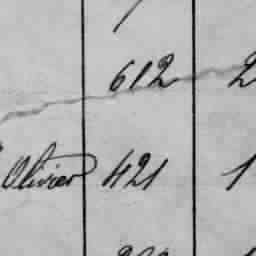 612 2
Olivier 421 1